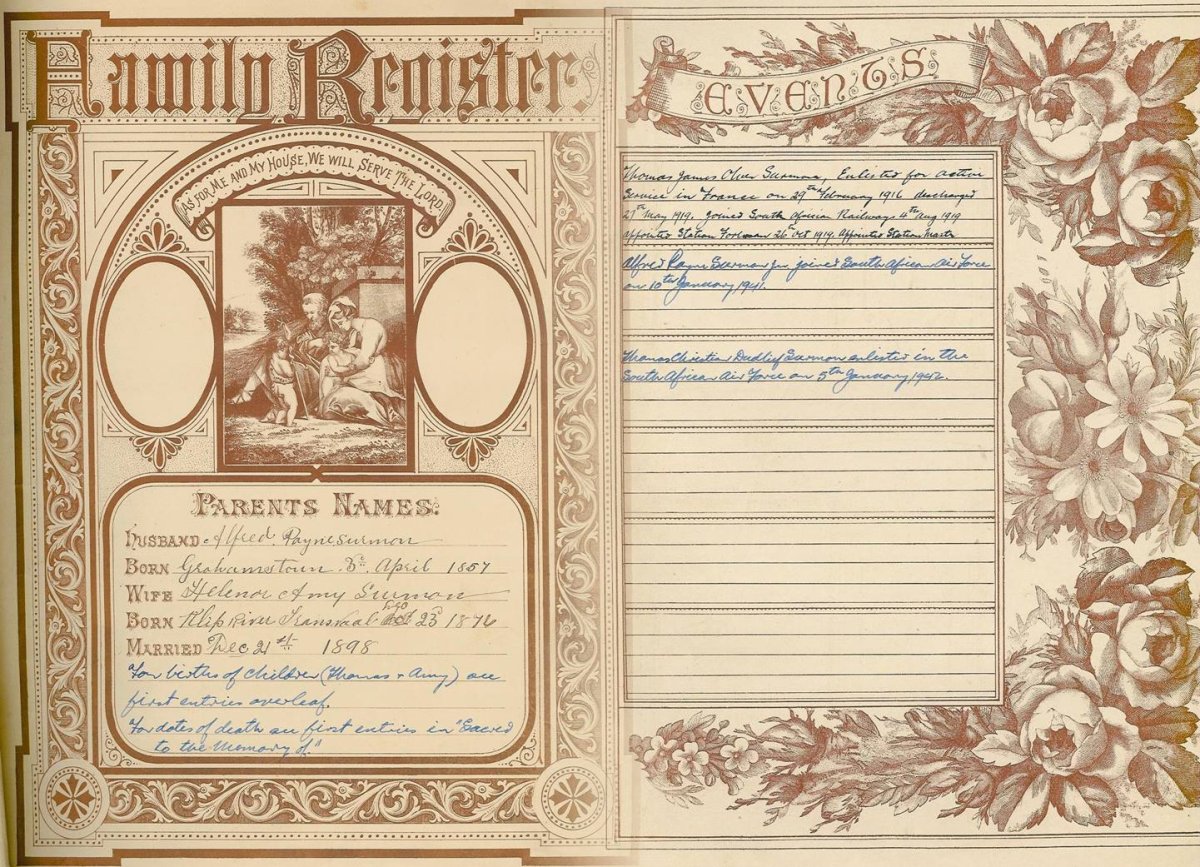 Family Register.
AS FOR ME AND MY HOUSE, WE WILL SERVE THE LORD.
PARENTS NAMES:
HUSBAND Alfred Payne Surmon
BORN Grahamstown 3rd April 1857
WIFE Helenor Amy Surmon
BORN Klip River Transvaal 23rd 1876
MARRIED Dec 21st 1898
For births of children (Thomas + Amy) see
first entries overleaf.
For dates of death see first entries in "Sacred
to the Memory of"
EVENTS.
Thomas James Oliver Surmon, Enlisted for active
Service in France on 29th February 1916 discharged
27th May 1919. Joined South African Railways 4th Aug 1919
Appointed Station Foreman 26th Oct 1919. Appointed Station Master
Alfred Payne Surmon Jnr joined South African Air Force
on 10th January 1941.
Thomas Christian Dudley Surmon enlisted in the
South African Air Force on 5th January 1942.